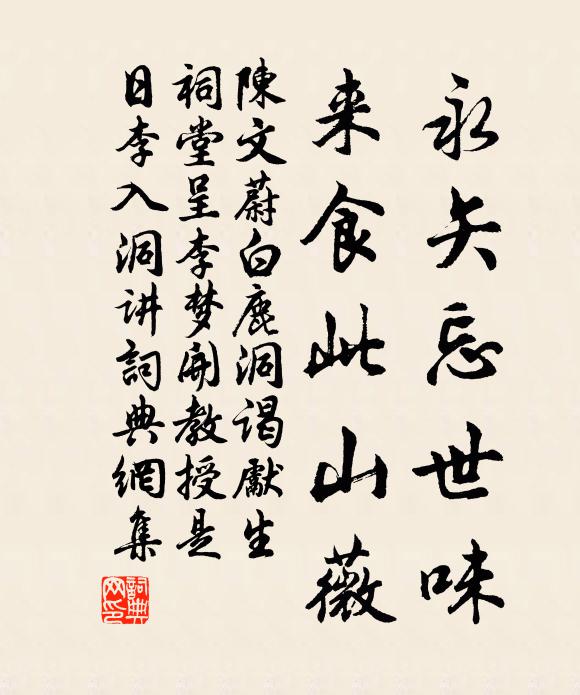 永矢忘世味
来食此山薇
陳文蔚白鹿洞谒獻生
祠堂呈李梦開教授是
日李入洞讲詞典網集
詞典網印